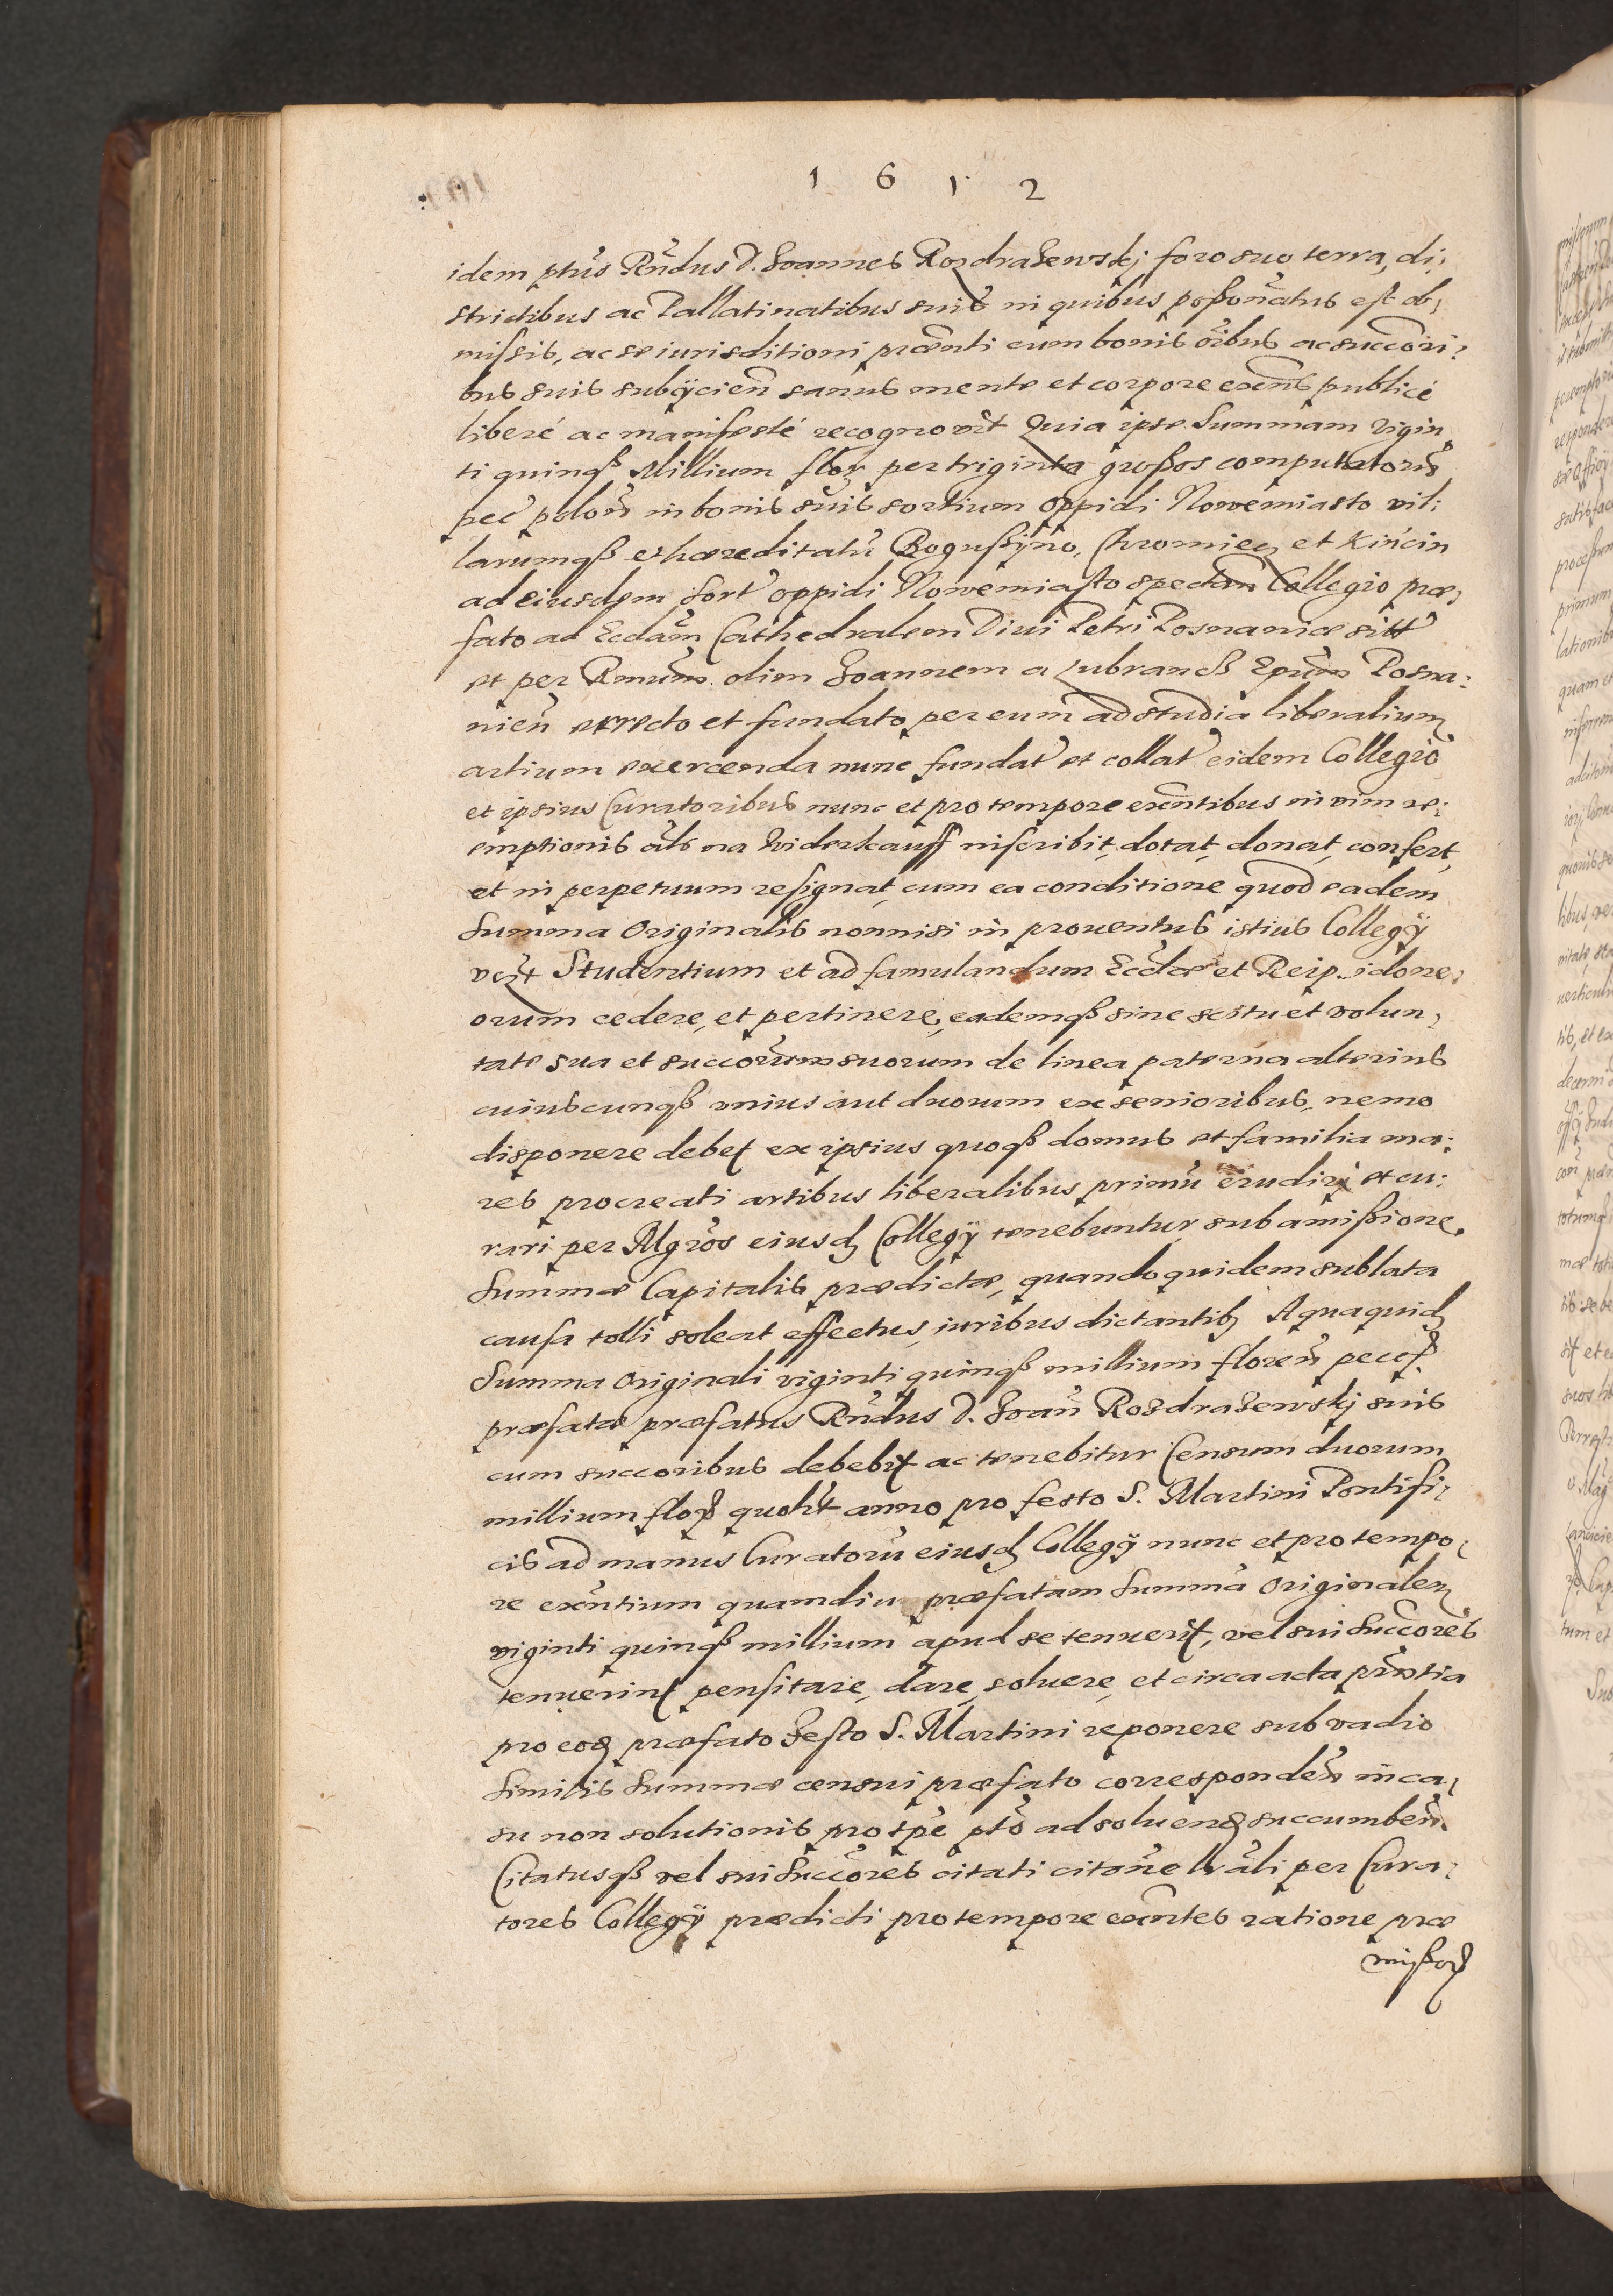 1 6 1 2
idem ptus Rndus D. Joannes Rozdrażewskj foro suo terra, di:
strictibus ac Pallatinatibus suis in quibus poßonatus est ob,
missis, ac se iurisditioni præsnti cum bonis oībus ac succori:
bus suis subÿcien sanus mente et corpore exens publicé
liberé ac manifesté recognovit Quia ipse Summam vigin
ti quinqß Millium flor per triginta großos computatorū
pec polon in bonis suis sortium oppidi Nowemiasto vil:
larumqß et hæreditatū Bogußÿno, Chromiec et Kińcin
ad eiusdem sort oppidi Nowemiasto spectan Collegio præ,
fato ad Eccłam Cathedralem Diui Petri Posnaniæ sitt
et per Rmum olim Joannem a Lubrancß Epum Posna:
nien erecto et fundato per eum ad studia liberalium
artium exercenda nunc fundat et collat eidem Collegio
et ipsius Curatoribus nunc et pro tempore exntibus in vim re:
emptionis als na Widerkauff inscribit, dotat, donat, confert,
et in perpetuum resignat, cum ea conditione quod eadem
Summa Originalis nonnisi in prouentus istius Collegÿ
vczt Studentium et ad famulandum Eccłæ et Reip. idone,
orum cedere, et pertinere, eademqß sine scitu et volun,
tate sua et succorum suorum de linea paterna alterius
cuiuscunqß vnius aut duorum ex senioribus, nemo
disponere debet ex ipsius quoqß domus et familia ma:
res procreati artibus liberalibus primū erudiri et cu:
rari per Mgros eiusd Collegÿ tenebuntur sub amißione
Summæ Capitalis prædictæ, quandoquidem sublata
causa tolli soleat effectus, iuribus dictantib A qua quid
Summa Originali viginti quinqß millium floren pecę
præfatæ præfatus Rndus D. Joan Rozdrażewskj suis
cum succoribus debebit ac tenebitur Censum duorum
millium flor quolit anno pro festo S. Martini Pontifi,
cis ad manus Curatorū eiusd Collegÿ nunc et pro tempo,
re exntium quamdiu præfatam Summā Originalem
viginti quinqß millium apud se tenuerit, vel sui Succores
tenuerint pensitare, dare, soluere, et circa acta prntia
pro eod præfato Festo S. Martini reponere sub vadio
Similis Summæ censui præfato corresponden in ca,
su non solutionis pro tpe pto ad soluend succumben
Citatusqß vel sui Succores citati citone lrāli per Cura,
tores Collegÿ prædicti pro tempore exntes ratione præ
mißor